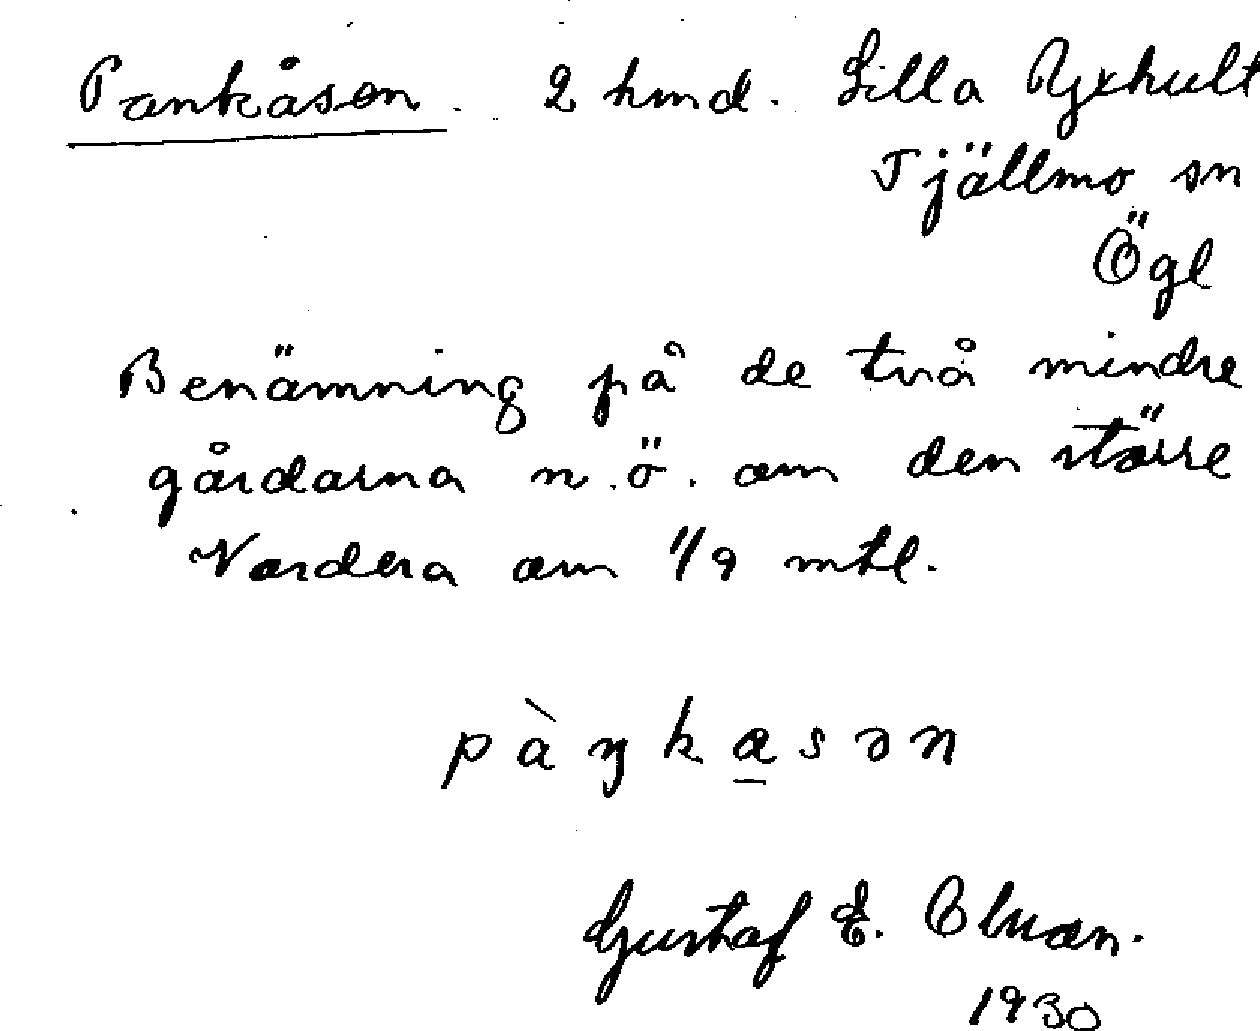 Pankåsen. 2 hmd. Lilla Yxhult
Tjällmo sn
Ögl
Benämning på de två mindre
gårdarna n.ö. om den större
Vardera om 1/9 mtl.
pàŋkasən
Gustaf E.
1930